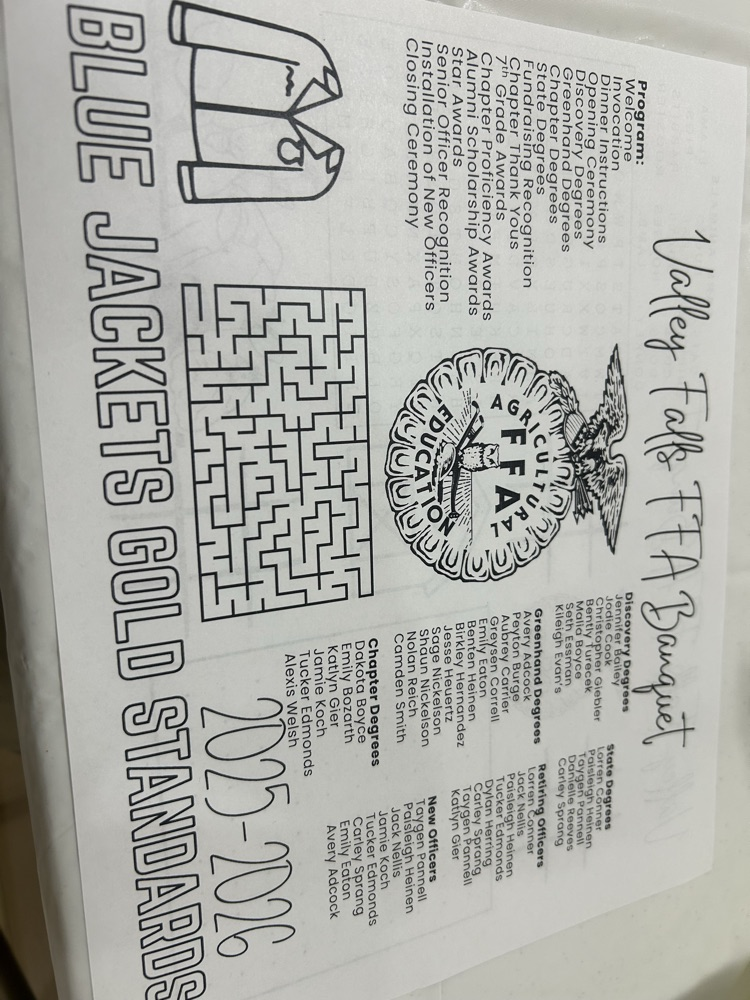 Valley Falls FFA Banquet
Program:
Welcome
Invocation
Dinner Instructions
Opening Ceremony
Discovery Degrees
Greenhand Degrees
Chapter Degrees
State Degrees
Fundraising Recognition
Chapter Thank Yous
7th Grade Awards
Chapter Proficiency Awards
Alumni Scholarship Awards
Star Awards
Senior Officer Recognition
Installation of New Officers
Closing Ceremony
AGRICULTURAL
FFA
EDUCATION
Discovery Degrees
Jennifer Bailey
Jodie Cook
Christopher Giebler
Bently Turecek
Malia Boyce
Seth Essman
Kileigh Evan s
Greenhand Degrees
Avery Adcock
Peyton Burge
Aubrey Carrier
Greysen Correll
Emily Eaton
Benten Heinen
Birkley Hernandez
Jesse Heuertz
Sage Nickelson
Shaun Nickelson
Nolan Reich
Camden Smith
Chapter Degrees
Dakota Boyce
Emily Bozarth
Katlyn Gier
Jamie Koch
Tucker Edmonds
Alexis Welsh
State Degrees
Lorren Conner
Paisleigh Heinen
Taygen Pannell
Danielle Reeves
Carley Sprang
Retiring Officers
Lorren Conner
Jack Nellis
Paisleigh Heinen
Tucker Edmonds
Dylan Herring
Carley Sprang
Taygen Pannell
Katlyn Gier
New Officers
Taygen Pannell
Paisleigh Heinen
Jack Nellis
Jamie Koch
Tucker Edmonds
Carley Sprang
Emily Eaton
Avery Adcock
2025-2026
BLUE JACKETS GOLD STANDARDS